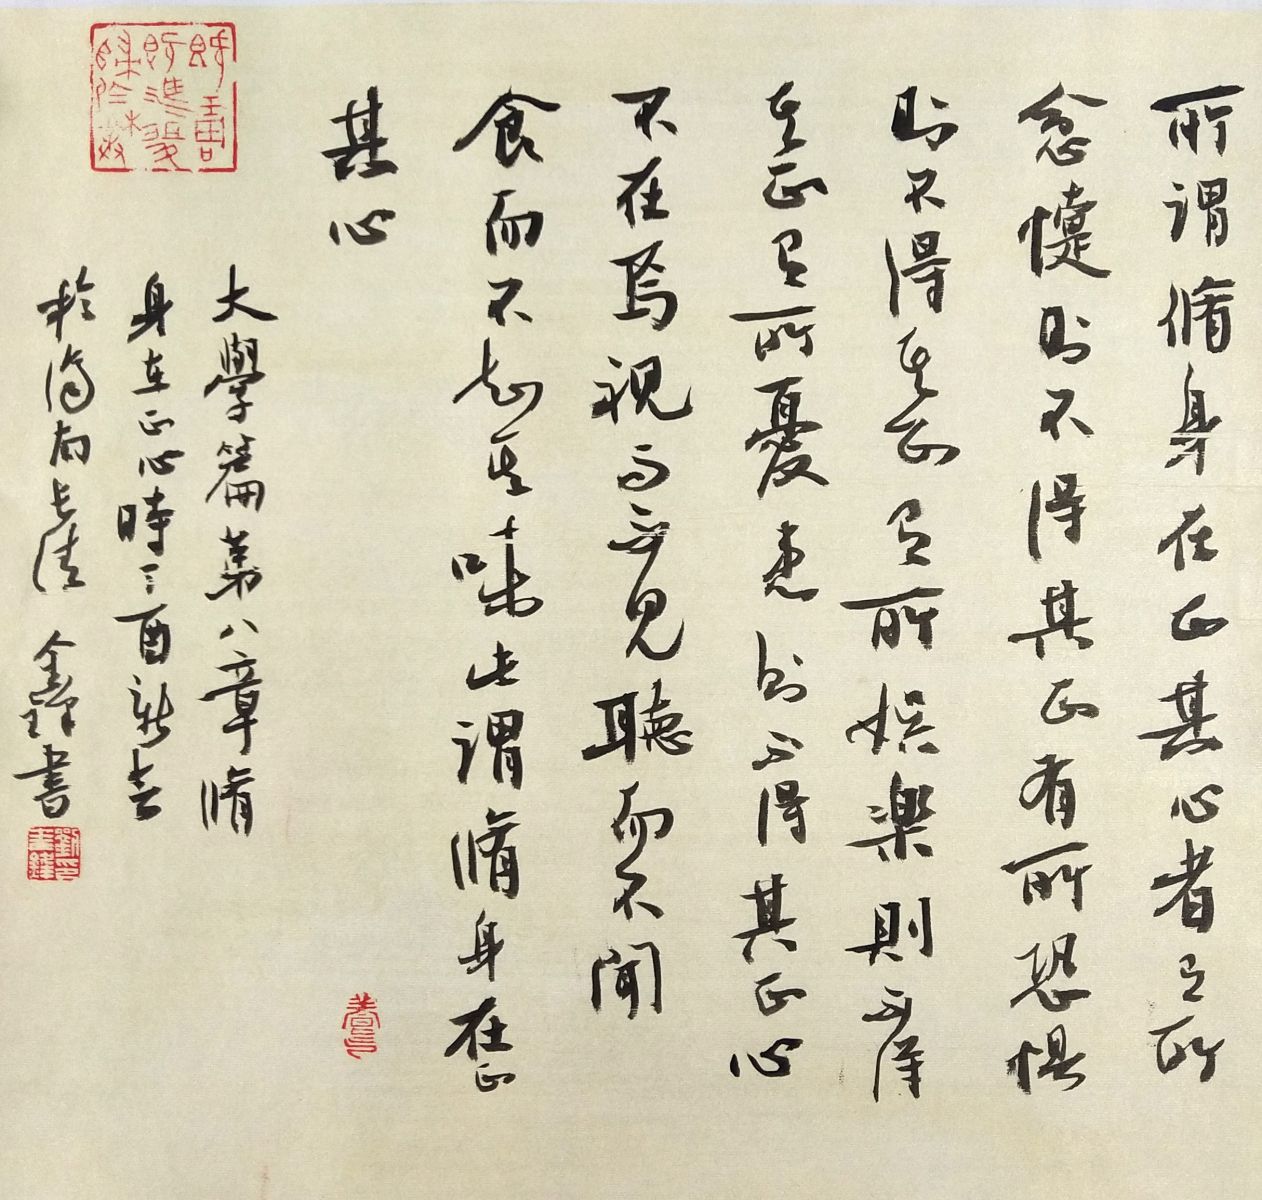 所谓脩身在正其心者身有所
忿懥则不得其正有所恐惧
则不得其正有所娱樂則不得
其正有所憂患则不得其正心
不在焉视而不见聽而不闻
食而不知其味此谓脩身在正
其心
大學篇第八章脩
身在正心時丁酉新春
於济南长清 鑫鐸書